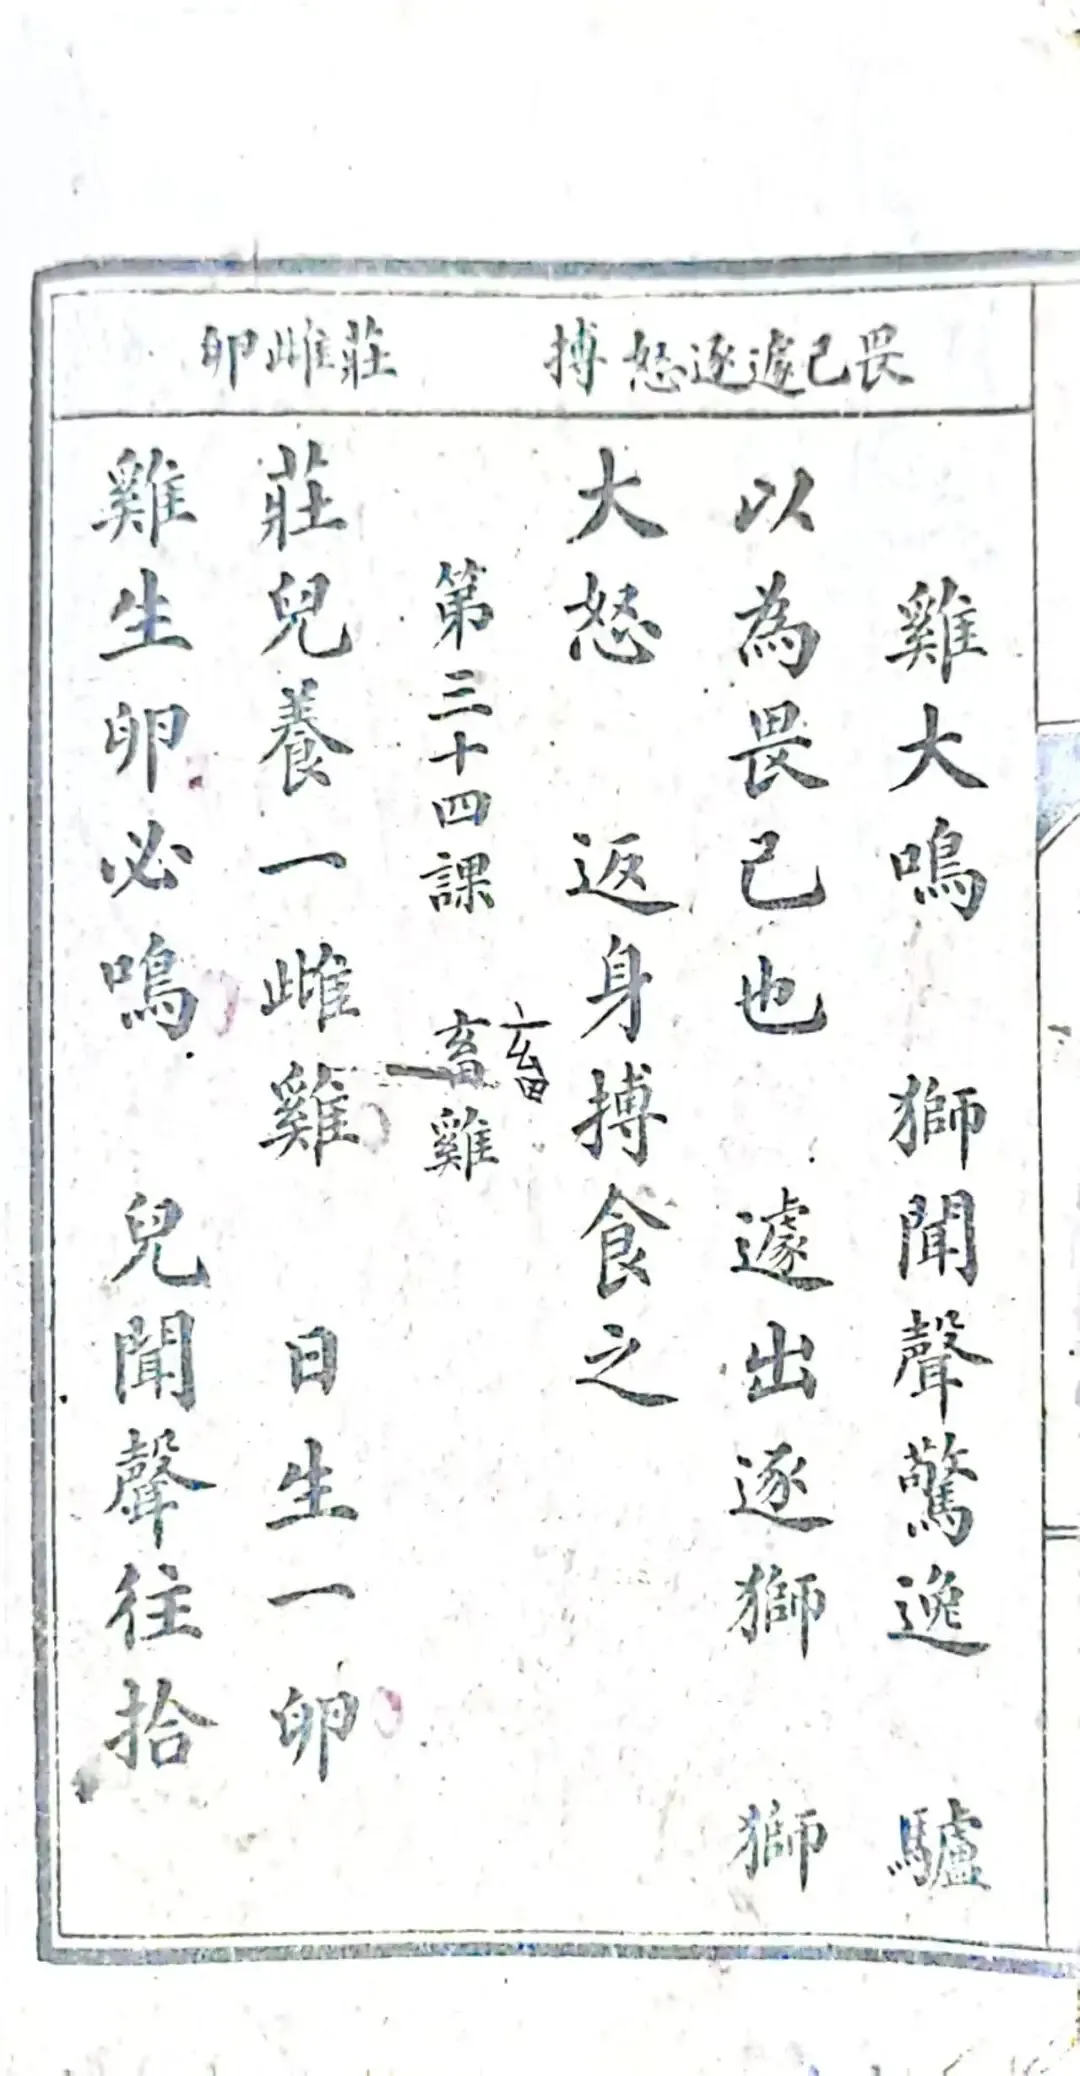 畏己遽逐怒搏　莊雌卵
雞大鳴　獅聞聲驚逸　驢
以為畏己也　遽出逐獅　獅
大怒　返身搏食之
第三十四課　畜雞
畜
莊兒養一雌雞　日生一卵
雞生卵必鳴　兒聞聲往拾